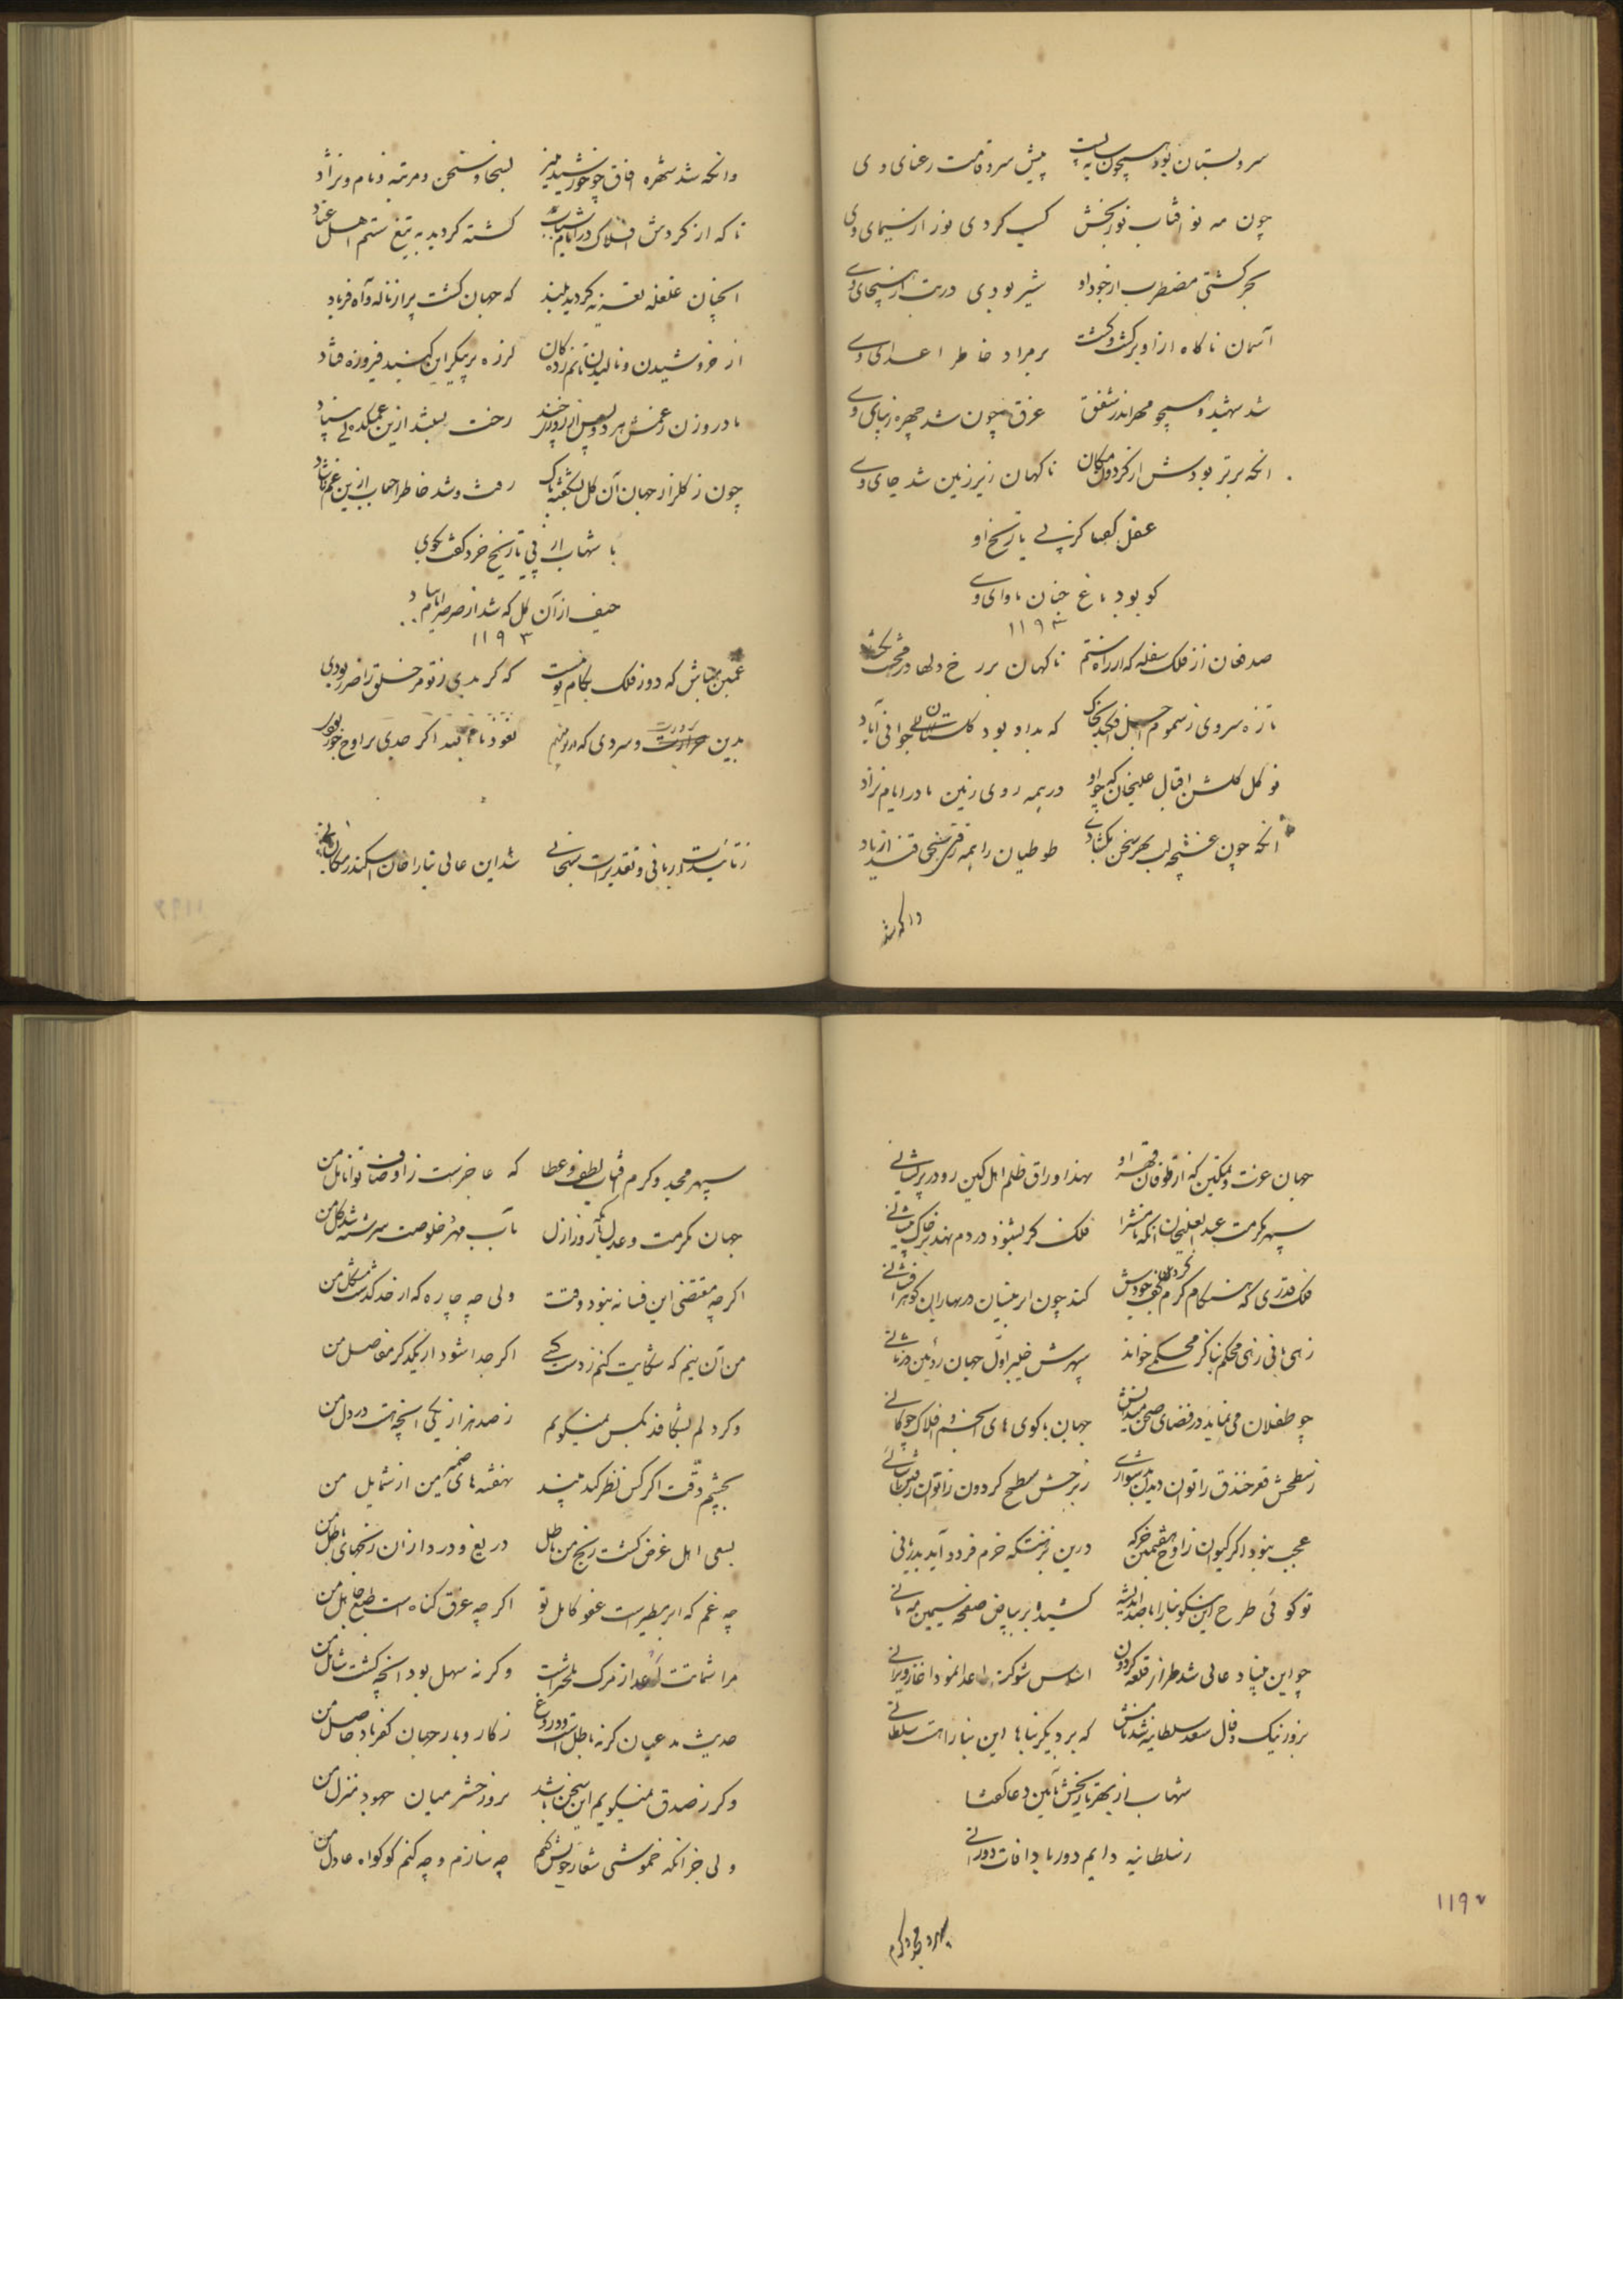 سرو بستان بود همچون سایه پست پیش سرو قامت رعنای وی
چون مه نو افتاب نوربخش کسب کردی نور از سیمای وی
بحر کشتی مضطرب از جود او شیر بودی در تب از هیجای وی
آسمان ناکاه ازو برکشت و کشت بر مراد خاطر اعدای وی
شد شهید و همچو مهر اندر شفق غرق خون شد چهره زیبای وی
انکه برتر بودش از کردون مکان ناکهان زیر زمین شد جای وی
عقل کفتا کز پی تاریخ او
کو بود باغ جنان ماوای وی
۱۱۹۳
صد فغان از فلک سفله که از راه ستم ناکهان بر رخ دلها در محنت بکشاد
تازه سروی ز سموم اجل افکند بخاک که بدو بود کلستان جوانی آباد
نو کل کلشن اقبال علیخان که چو او در همه روی زمین مادر ایام نزاد
آنکه چون غنچه لب بهر سخن بکشادی طوطیان را همه رفتی سخن قند از یاد
وانکه شد
وانکه شد شهره افاق چو خورشید منیر بسخا و سخن و مرتبه و نام و نژاد
تا که از کردش افلاک در ایام شباب کشته کردید به تیغ ستم اهل عناد
انچنان غلغله تعزیه کردید بلند که جهان کشت پر از ناله و آه و فریاد
از خروشیدن و نالیدن ماتم زدکان لرزه بر پیکر این کنبد فیروزه فتاد
رخت بعشد ازین غمکده بی بنیاد
چون ز کلزار جهان آن کل نشکفته بخاک رفت و شد خاطر احباب ازین غم ناشاد
با شهاب از پی تاریخ خرد کفت بکوی
حیف از آن کل که شد از صرصر ایام بباد
۱۱۹۳
غمین مباش که دور فلک بکام تو نیست که کر بدی ز تو مر خلق را ضرر بودی
بدین برودت و سردی که در تو میبینم نعوذ بالله اکر
ز تائیدات ربانی و تقدیرات سبحانی شد این عالی بنا را خان اسکندر مکان بانی
جهان عزت و تمکین که از طوفان قهر او نهد اوراق ظلم اهل کین رو در پریشانی
سپهر مکرمت عبد العلیخان انکه نامش را فلک کر بشنود در دم نهد بر خاک پیشانی
فلک قدری که هنکام کرم کردن کف جودش کند چون ابر نیسان در بهاران کوهر افشانی
زهی بانی زهی محکم بنا کز محکمی خواند سپهرش خیبر اول جهان روئین دز ثانی
چو طفلان می نماید در فضای صحن میدانش جهان با کوی های انجم و افلاک چوکانی
ز سطحش قعر خندق را توان دیدن بدشواری ز برجش سطح کردون را توان رفتن بآسانی
عجب نبود اکر کیوان ز اوج هفتمین خرکه درین نزهتکه خرم فرود آید بدربانی
تو کوئی طرح این نیکو بنا را با صد اندیشه کشیده بر بیاض صفحه سیمین مه مانی
چو این بنیاد عالی شد طراز قلعه کردون اساس شوکت اعدا نمود اغاز ویرانی
بروز نیک و فال سعد سلطانیه شد نامش که بر دیکر بناها این بنا راهست سلطانی
شهاب از بهر تاریخش بآئین دعا کفتا
ز سلطانیه دایم دور بادا فات دورانی
۱۱۹۷
سپهر مجد و کرم
سپهر مجد و کرم آفتاب لطف و عطا که عاجزست ز اوصاف تو انامل من
جهان مکرمت و عدل آنکه روز ازل بآب مهر و خلوصت سرشته شد کل من
اکرچه مقتضی این فسانه نبود وقت ولی چه چاره که از حد کذشت مشکل من
من آن نیم که شکایت کنم ز دست کسی اکر جدا شود از یکدکر مفاصل من
وکر دلم بشکافد بکس نمیکویم ز صد هزار یکی انچه هست در دل من
بچشم دقت اکر کس نظر کند بیند نهفته های ضمیر من از شمایل من
بسعی اهل غرض کشت رنج من باطل دریغ و درد از ان رنجهای باطل من
چه غم که ابر مطیرست عفو کامل تو اکر چه غرق کناه است طبع جاهل من
مرا شماتت اعدا ز مرک تلخترست وکرنه سهل بود انچه کشت شامل من
حدیث مدعیان کرنه باطل است و دروغ ز کار و بار جهان کفر باد حاصل من
وکر ز صدق نمیکویم این سخن باشد بروز حشر میان جهود منزل من
ولی جز انکه خموشی شعار خویش کنم چه سازم و چه کنم کو کواه عادل من